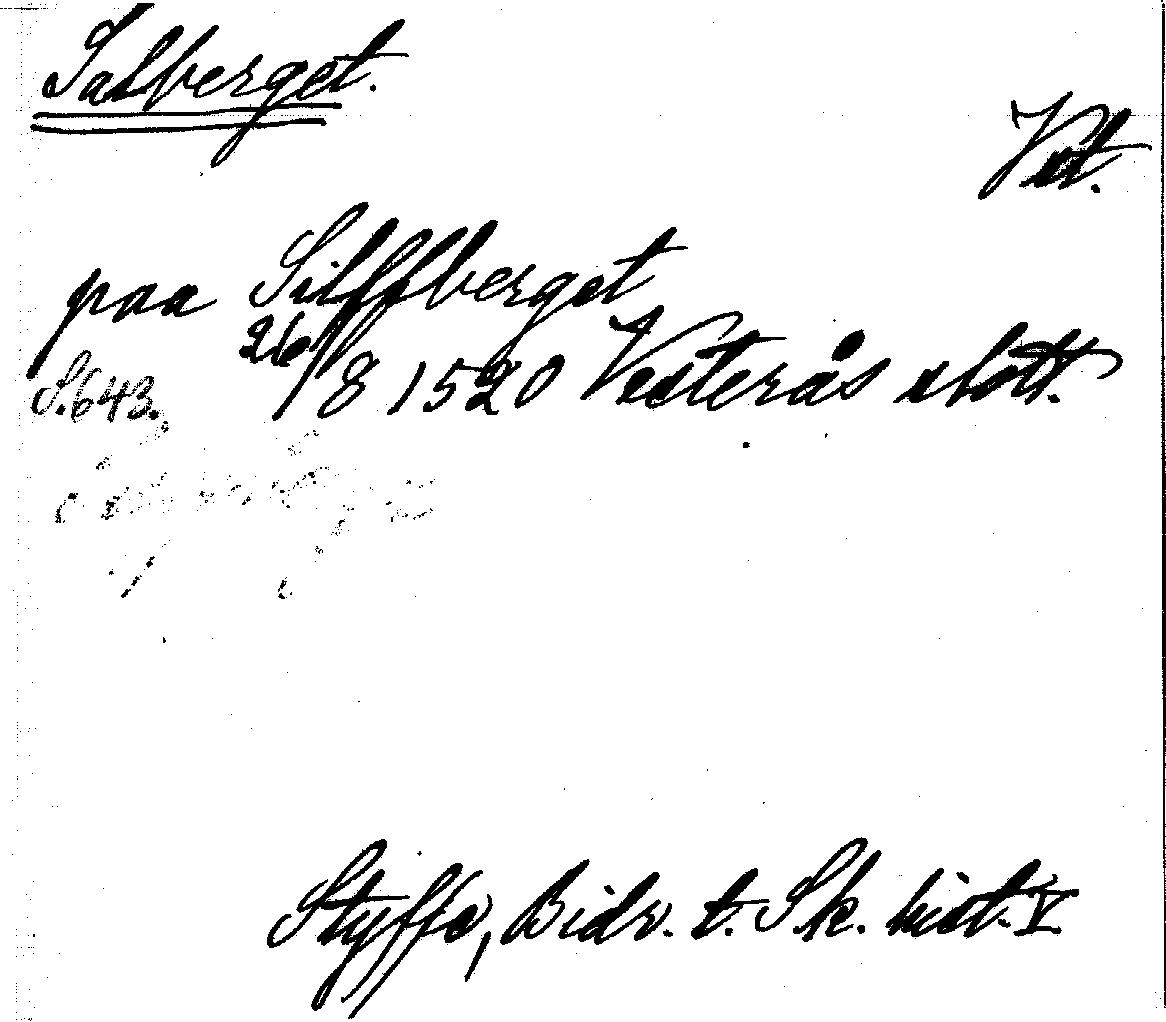 Salberget.
Vst.
paa Silffberget
26/8 1520 Vesterås slott.
S. 643.
Styffe, Bidr. t. Sk. hist. V.